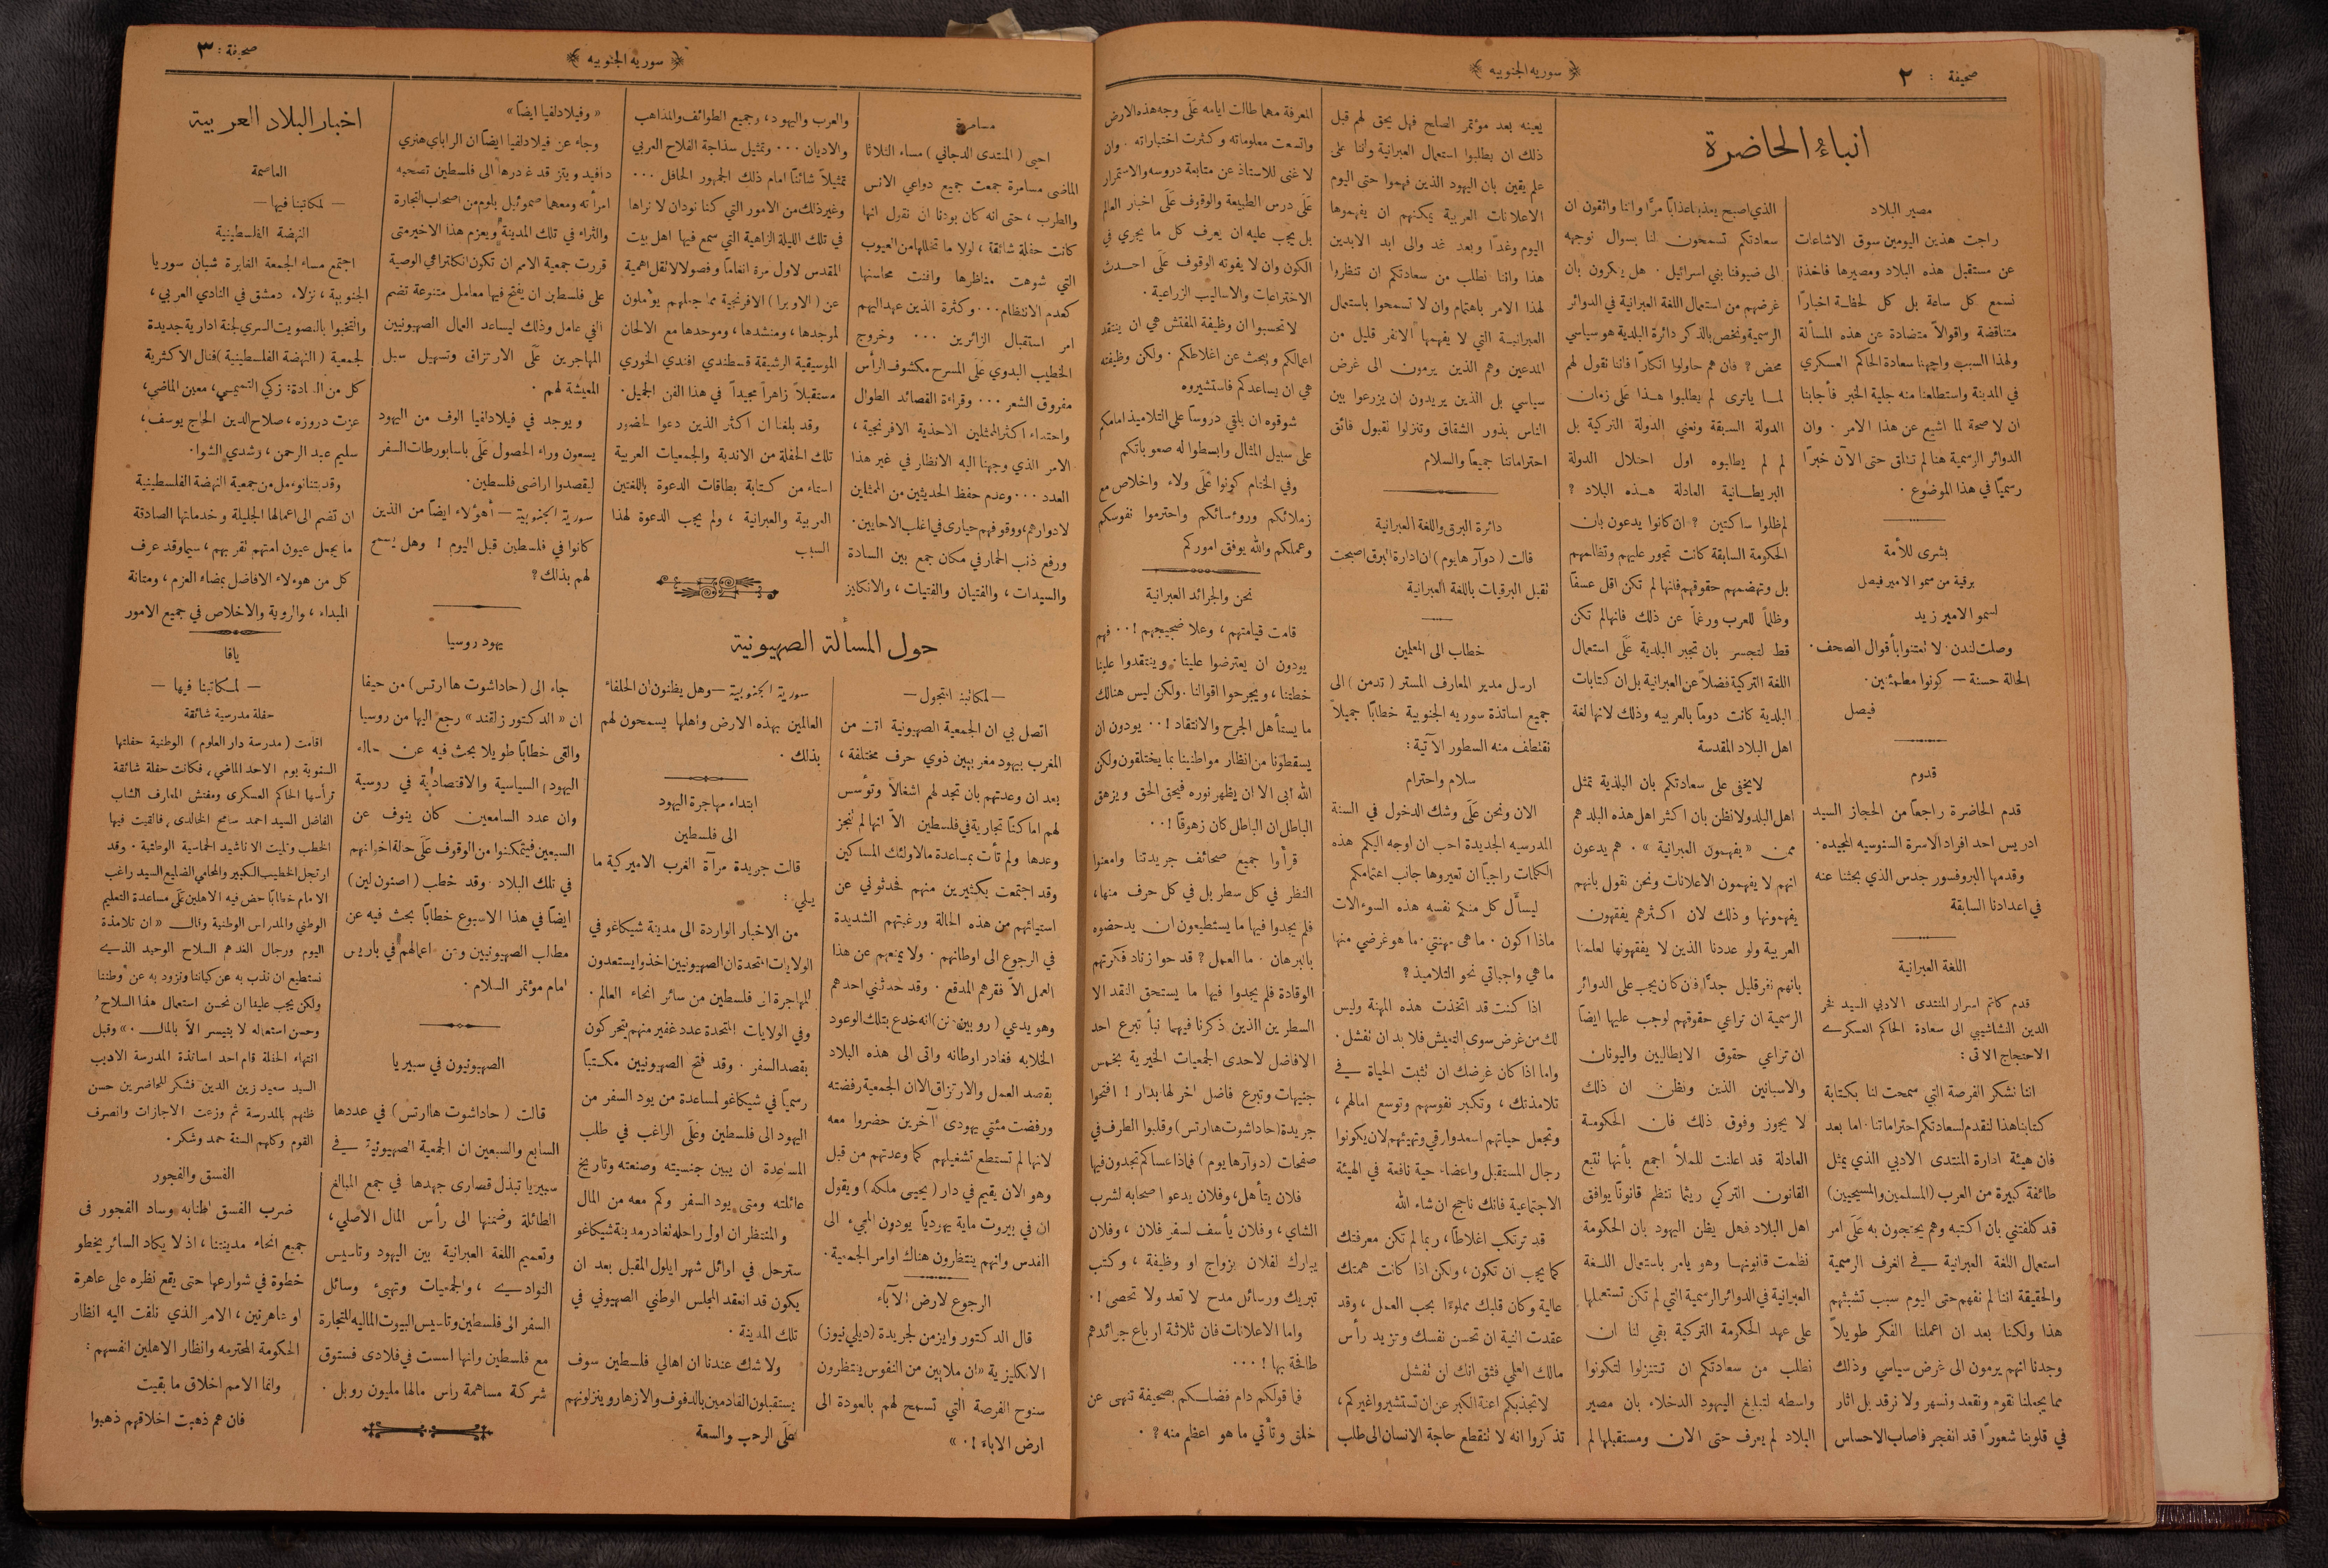 صحيفة : ٢
﴿ سورية الجنوبيه ﴾
انباء الحاضرة
مصير البلاد
راجت هذين اليومين سوق الاشاعات
عن مستقبل هذه البلاد ومصيرها فاخذنا
نسمع كل ساعة بل كل لحظة اخبارًا
متناقضة واقوالاً متضادة عن هذه المسألة
ولهذا السبب واجهنا سعادة الحاكم العسكري
في المدينة واستطلعنا منه جلية الخبر فأجابنا
ان لا صحة لما اشيع عن هذا الامر . وان
الدوائر الرسمية هنا لم تتلق حتى الآن خبرًا
رسميًا في هذا الموضوع .
بشرى للأمة
برقية من سمو الامير فيصل
لسمو الامير زيد
وصلت لندن . لا تعتنوا بأقوال الصحف .
الحالة حسنة — كونوا مطمئنين .
فيصل
قدوم
قدم الحاضرة راجعًا من الحجاز السيد
ادريس احد افراد الاسرة السنوسيه المجيده .
وقدمها البروفسور جدس الذي بحثنا عنه
في اعدادنا السابقة
اللغة العبرانية
قدم كاتم اسرار المنتدى الادبي السيد فخر
الدين النشاشيبي الى سعادة الحاكم العسكري
الاحتجاج الاتى :
اننا نشكر الفرصة التي سمحت لنا بكتابة
كتابنا هذا لنقدم لسعادتكم احتراماتنا . اما بعد
فان هيئة ادارة المنتدى الادبي الذي يمثل
طائفة كبيرة من العرب (المسلمين والمسيحيين)
قد كلفتني بان اكتبه وهم يحتجون به عَلَى امر
استعمال اللغة العبرانية في الغرف الرسمية
والحقيقة اننا لم نفهم حتى اليوم سبب تشبثهم
هذا ولكننا بعد ان اعملنا الفكر طويلاً
وجدنا انهم يرمون الى غرض سياسي وذلك
مما يجعلنا نقوم ونقعد ونسهر ولا نرقد بل اثار
في قلوبنا شعورًا قد انفجر فاصاب الاحساس
الذي اصبح يعذبنا عذابًا مرًّا واننا واثقون ان
سعادتكم تسمحون لنا بسوال نوجهه
الى ضيوفنا بني اسرائيل . هل ينكرون بان
غرضهم من استعمال اللغة العبرانية في الدوائر
الرسمية ونخص بالذكر دائرة البلدية هو سياسي
محض ? فان هم حاولوا انكارًا فاننا نقول لهم
لماذا ياترى لم يطلبوا هذا عَلَى زمان
الدولة السبقة ونعني الدولة التركية بل
لم لم يطلبوه اول احتلال الدولة
البريطانية العادلة هذه البلاد ?
لم ظلوا ساكتين ? ان كانوا يدعون بان
الحكومة السابقة كانت تجور عليهم وتظلمهم
بل وتهضمهم حقوقهم فانها لم تكن اقل عسفًا
وظلمًا للعرب ورغمًا عن ذلك فانها لم تكن
قط لتجسر بان تجبر البلدية عَلَى استعمال
اللغة التركية فضلاً عن العبرانية بل ان كتابات
البلدية كانت دومًا بالعربيه وذلك لانها لغة
اهل البلاد المقدسة
لا يخفى على سعادتكم بان البلدية تمثل
اهل البلد ولا نظن بان اكثر اهل هذه البلد هم
ممن « يفهمون العبرانية » . هم يدعون
انهم لا يفهمون الاعلانات ونحن نقول بانهم
يفهمونها وذلك لان اكثرهم يفقهون
العربية ولو عددنا الذين لا يفقهونها لعلمنا
بانهم نفر قليل جدًّا فان كان يجب على الدوائر
الرسمية ان تراعي حقوقهم لوجب عليها ايضًا
ان تراعي حقوق الايطاليين واليونان
والاسبانيين الذين ونظن ان ذلك
لا يجوز وفوق ذلك فان الحكومة
العادلة قد اعلنت للملأ اجمع بأنها تتبع
القانون التركي ريثما تنظم قانونًا يوافق
اهل البلاد فهل يظن اليهود بان الحكومة
نظمت قانونها وهو يامر باستعمال اللغة
العبرانية في الدوائر الرسمية التي لم تكن تستعملها
على عهد الحكومة التركية بقي لنا ان
نطلب من سعادتكم ان تتنزلوا لتكونوا
واسطه لتبليغ اليهود الدخلاء بان مصير
البلاد لم يعرف حتى الان ومستقبلها لم
يعينه بعد مؤتمر الصلح فهل يحق لهم قبل
ذلك ان يطلبوا استعمال العبرانية واننا على
علم يقين بان اليهود الذين فهموا حتى اليوم
الاعلانات العربية يمكنهم ان يفهموها
اليوم وغدًا وبعد غد والى ابد الابدين
هذا واننا نطلب من سعادتكم ان تنظروا
لهذا الامر باهتمام وان لا تسمحوا باستعمال
العبرانية التي لا يفهمها الا نفر قليل من
المدعين وهم الذين يرمون الى غرض
سياسي بل الذين يريدون ان يزرعوا بين
الناس بذور الشقاق وتنزلوا لقبول فائق
احتراماتنا جميعًا والسلام
دائرة البرق واللغة العبرانية
قالت (دوآر هايوم) ان ادارة البرق اصبحت
تقبل البرقيات باللغة العبرانية
خطاب الى المعلمين
ارسل مدير المعارف المستر (تدمن) الى
جميع اساتذة سوريه الجنوبية خطابًا جميلاً
نقتطف منه السطور الآتية :
سلام واحترام
الان ونحن عَلَى وشك الدخول في السنة
المدرسيه الجديدة احب ان اوجه اليكم هذه
الكلمات راجيًا ان تعيروها جانب اهتمامكم
ليسأل كل منكم نفسه هذه السوءالات
ماذا اكون . ما هي مهنتي . ما هو غرضي منها
ما هي واجباتي نحو التلاميذ ?
اذا كنت قد اتخذت هذه المهنة وليس
لك من غرض سوى التعيش فلا بد ان تفشل .
واما اذا كان غرضك ان تثبت الحياة في
تلامذتك ، وتكبر نفوسهم وتوسع امالهم ،
وتجعل حياتهم اسعد وارقي وتهيئهم لان يكونوا
رجال المستقبل واعضاء حية نافعة في الهيئة
الاجتماعية فانك ناجح ان شاء الله
قد ترتكب اغلاطًا ، ربما لم تكن معرفتك
كما يجب ان تكون ، ولكن اذا كانت همتك
عالية وكان قلبك مملوءًا بحب العمل ، وقد
عقدت النية ان تحسن نفسك وتزيد رأس
مالك العلمي فثق انك لن تفشل
لا تجذبكم اعنة الكبر عن ان تستشيروا غيركم ،
تذكروا انه لا تنقطع حاجة الانسان الى طلب
المعرفة مهما طالت ايامه عَلَى وجه هذه الارض
واتسعت معلوماته وكثرت اختباراته . وان
لا غنى للاستاذ عن متابعة دروسه والاستمرار
عَلَى درس الطبيعة والوقوف عَلَى اخبار العالم
بل يجب عليه ان يعرف كل ما يجري في
الكون وان لا يفوته الوقوف عَلَى احدث
الاختراعات والاساليب الزراعية .
لا تحسبوا ان وظيفة المفتش هي ان ينتقد
اعمالكم ويبحث عن اغلاطكم . ولكن وظيفته
هي ان يساعدكم فاستشيروه
شوقوه ان يلقي دروسًا على التلاميذ امامكم
على سبيل المثال وابسطوا له صعوباتكم
وفي الختام كونوا عَلَى ولاء واخلاص مع
زملائكم وروءسائكم واحترموا نفوسكم
وعملكم والله يوفق اموركم
نحن والجرائد العبرانية
قامت قيامتهم ، وعلا ضجيجهم !.. فهم
يودون ان يعترضوا علينا ، وينتقدوا علينا
خطتنا ، ويجرحوا اقوالنا . ولكن ليس هنالك
ما يستأهل الجرح والانتقاد !.. يودون ان
يسقطونا من انظار مواطنينا بما يختلقون ولكن
الله ابى الا ان يظهر نوره فيحق الحق ويزهق
الباطل ان الباطل كان زهوقًا !..
قرأوا جميع صحائف جريدتنا وامعنوا
النظر في كل سطر بل في كل حرف منها ،
فلم يجدوا فيها ما يستطيعون ان يدحضوه
بالبرهان . ما العمل ? قدحوا زناد فكرتهم
الوقادة فلم يجدوا فيها ما يستحق النقد الا
السطرين الذين ذكرنا فيهما نبأ تبرع احد
الافاضل لاحدى الجمعيات الخيرية بخمس
جنيهات وتبرع فاضل اخر لها بدار ! افتحوا
جريدة (حاداشوت هاارتس) وقلبوا الطرف في
صفحات (دوآرهايوم) فماذا عساكم تجدون فيها
فلان يتأهل ، وفلان يدعوا اصحابه لشرب
الشاي ، وفلان يأسف لسفر فلان ، وفلان
يبارك لفلان بزواج او وظيفة ، وكتب
تبريك ورسائل مدح لا تعد ولا تحصى !.
واما الاعلانات فان ثلاثة ارباع جرائدهم
طافحة بها !...
فما قولكم دام فضلكم بصحيفة تنهى عن
خلق وتأتي ما هو اعظم منه ? .
﴿ سورية الجنوبيه ﴾
صحيفة : ٣
مسامرة
احيى (المنتدى الدجاني) مساء الثلاثا
الماضى مسامرة جمعت جميع دواعي الانس
والطرب ، حتى انه كان بودنا ان نقول انها
كانت حفلة شائقة ، لولا ما تخللها من العيوب
التي شوهت مناظرها وافنت محاسنها
كعدم الانتظام ... وكثرة الذين عهد اليهم
امر استقبال الزائرين ... وخروج
الخطيب البدوي عَلَى المسرح مكشوف الرأس
مفروق الشعر ... وقراءة القصائد الطوال
واحتذاء اكثر الممثلين الاحذية الافرنجية ،
الامر الذي وجهنا اليه الانظار في غير هذا
العدد ... وعدم حفظ الحديثين من الممثلين
لادوارهم ، ووقوفهم حيارى في اغلب الاحايين .
ورفع ذنب الحمار في مكان جمع بين السادة
والسيدات ، والفتيان والفتيات ، والانكليز
والعرب واليهود ، وجميع الطوائف والمذاهب
والاديان ... وتمثيل سذاجة الفلاح العربي
تمثيلاً شائنًا امام ذلك الجمهور الحافل ...
وغير ذلك من الامور التي كنا نودان لا نراها
في تلك الليلة الزاهية التي سمع فيها اهل بيت
المقدس لاول مرة انغامًا وفصولا لا تقل اهمية
عن (الاوبرا) الافرنجية مما جعلهم يوءملون
لموجدها ، ومنشدها ، وموحدها مع الالحان
الموسيقية الرشيقة قسطندي افندي الخوري
مستقبلاً زاهراً مجيداً في هذا الفن الجميل .
وقد بلغنا ان اكثر الذين دعوا لحضور
تلك الحفلة من الاندية والجمعيات العربية
استاء من كتابة بطاقات الدعوة باللغتين
العربية والعبرانية ، ولم يجب الدعوة لهذا
السبب
حول المسألة الصهيونية
— لمكاتبنا المتجول —
اتصل بي ان الجمعية الصهيونية اتت من
المغرب بيهود مغربيين ذوي حرف مختلفة ،
بعد ان وعدتهم بان تجد لهم اشغالاً وتؤسس
لهم اماكنًا تجارية في فلسطين الاّ انها لم تنجز
وعدها ولم تأت بمساعدة ما لاولئك المساكين
وقد اجتمعت بكثيرين منهم فحدثوني عن
استيائهم من هذه الحالة ورغبتهم الشديدة
في الرجوع الى اوطانهم . ولا يمنعهم عن هذا
العمل الاّ فقرهم المدقع . وقد حدثني احدهم
وهو يدعي (روبين ) انه خدع بتلك الوعود
الخلابه فغادر اوطانه واتى الى هذه البلاد
بقصد العمل والارتزاق الا ان الجمعية رفضته
ورفضت مئتي يهودى آخرين حضروا معه
لانها لم تستطع تشغيلهم كما وعدتهم من قبل
وهو الان يقيم في دار (يحيى ملكه) ويقول
ان في بيروت ماية يهوديًا يودون المجيء الى
القدس وانهم ينتظرون هناك اوامر الجمعية .
الرجوع لارض الآباء
قال الدكتور وايزمن لجريدة (ديلي نيوز)
الانكليزية « ان ملايين من النفوس ينتظرون
سنوح الفرصة التي تسمح لهم بالعودة الى
ارض الاباء !. »
سورية الجنوبية — وهل يظنون ان الحلفاء
العالمين بهذه الارض واهلها يسمحون لهم
بذلك .
ابتداء مهاجرة اليهود
الى فلسطين
قالت جريدة مرآة الغرب الاميركية ما
يلي :
من الاخبار الواردة الى مدينة شيكاغو في
الولايات المتحدة ان الصهيونيين اخذوا يستعدون
للمهاجرة الى فلسطين من سائر انحاء العالم .
وفي الولايات المتحدة عدد غفير منهم يتحركون
بقصد السفر . وقد فتح الصهيونيين مكتبًا
رسميًا في شيكاغو لمساعدة من يود السفر من
اليهود الى فلسطين وعَلَى الراغب في طلب
المساعدة ان يبين جنسيته وصنعته وتاريخ
عائلته ومتى يود السفر وكم معه من المال
والمنتظر ان اول راحلة تغادر مدينة شيكاغو
سترحل في اوائل شهر ايلول المقبل بعد ان
يكون قد انعقد المجلس الوطني الصهيوني في
تلك المدينة .
ولا شك عندنا ان اهالي فلسطين سوف
يستقبلون القادمين بالدفوف والازهار وينزلونهم
عَلَى الرحب والسعة
« وفيلادلفيا ايضًا »
وجاء عن فيلادلفيا ايضًا ان الراباي هنري
دافيد ويتز قد غادرها الى فلسطين تصحبه
امرأته ومعهما صموئيل بلوم من اصحاب التجارة
والثراء في تلك المدينة ويعزم هذا الاخير متى
قررت جمعية الامم ان تكون انكلترا هي الوصية
على فلسطين ان يفتح فيها معامل متنوعة تضم
الفي عامل وذلك ليساعد العمال الصهيونيين
المهاجرين عَلَى الارتزاق وتسهيل سبل
المعيشة لهم .
ويوجد في فيلادلفيا الوف من اليهود
يسعون وراء الحصول عَلَى باسابورطات السفر
ليقصدوا اراضى فلسطين .
سورية الجنوبية — أهؤلاء ايضًا من الذين
كانوا في فلسطين قبل اليوم ! وهل يسمح
لهم بذلك ?
يهود روسيا
جاء الى (حاداشوت هاارتس) من حيفا
ان « الدكتور زلقند » رجع اليها من روسيا
والقى خطابًا طويلا بحث فيه عن حالة
اليهود السياسية والاقتصادية في روسية
وان عدد السامعين كان ينوف عن
السبعين فيتمكنوا من الوقوف عَلَى حالة اخوانهم
في تلك البلاد . وقد خطب ( )
ايضًا في هذا الاسبوع خطابًا بحث فيه عن
مطالب الصهيونيين وعن اعمالهم في باريس
امام مؤتمر السلام .
الصهيونيون في سبيريا
قالت (حاداشوت هاارتس) في عددها
السابع والسبعين ان الجمعية الصهيونية في
سبيريا تبذل قصارى جهدها في جمع المبالغ
الطائلة وضمنها الى رأس المال الاصلي ،
وتعميم اللغة العبرانية بين اليهود وتاسيس
النوادي ، والجمعيات وتهيء وسائل
السفر الى فلسطين وتاسيس البيوت الماليه للتجارة
مع فلسطين وانها اسست في فلادى فستوق
شركة مساهمة راس مالها مليون روبل .
اخبار البلاد العربية
العاصمة
— لمكاتبنا فيها —
النهضة الفلسطينية
اجتمع مساء الجمعة الغابرة شبان سوريا
الجنوبية ، نزلاء دمشق في النادي العربي ،
وانتخبوا بالتصويت السري لجنة ادارية جديدة
لجمعية (النهضة الفلسطينية) فنال الاكثرية
كل من السادة : زكي التميمي ، معين الماضي ،
عزت دروزه ، صلاح الدين الحاج يوسف ،
سليم عبد الرحمن ، رشدي الشوا .
وقد بتنا نوءمل من جمعية النهضة الفلسطينية
ان تضم الى اعمالها الجليلة وخدماتها الصادقة
ما يجعل عيون امتهم تقر بهم ، سيما وقد عرف
كل من هوءلاء الافاضل بمضاء العزم ، ومتانة
المبداء ، والروية والاخلاص في جميع الامور
يافا
— لمكاتبنا فيها —
حفلة مدرسية شائقة
اقامت (مدرسة دار العلوم) الوطنية حفلتها
السنوية يوم الاحد الماضي ، فكانت حفلة شائقة
ترأسها الحاكم العسكرى ومفتش المعارف الشاب
الفاضل السيد احمد سامح الخالدى ، فالقيت فيها
الخطب وتليت الاناشيد الحماسية الوطنية . وقد
ارتجل الخطيب الكبير والمحامي الضليع السيد راغب
الامام خطابًا حض فيه الاهلين عَلَى مساعدة التعليم
الوطني والمدراس الوطنية وقال « ان تلامذة
اليوم ورجال الغد هم السلاح الوحيد الذي
نستطيع ان نذب به عن كياننا ونزود به عن اوطننا
ولكن يجب علينا ان نحسن استعمال هذا السلاح
وحسن استعماله لا يتيسر الاّ بالمال . » وقبل
انتهاء الحفلة قام احد اساتذة المدرسة الاديب
السيد سعيد زين الدين فشكر للحاضرين حسن
ظنهم بالمدرسة ثم وزعت الاجازات وانصرف
القوم وكلهم السنة حمد وشكر .
الفسق والفجور
ضرب الفسق اطنابه وساد الفجور فى
جميع انحاء مدينتنا ، اذ لا يكاد السائر يخطو
خطوة في شوارعها حتى يقع نظره على عاهرة
او عاهرتين ، الامر الذي نلفت اليه انظار
الحكومة المحترمه وانظار الاهلين انفسهم :
وانما الامم اخلاق ما بقيت
فان هم ذهبت اخلاقهم ذهبوا